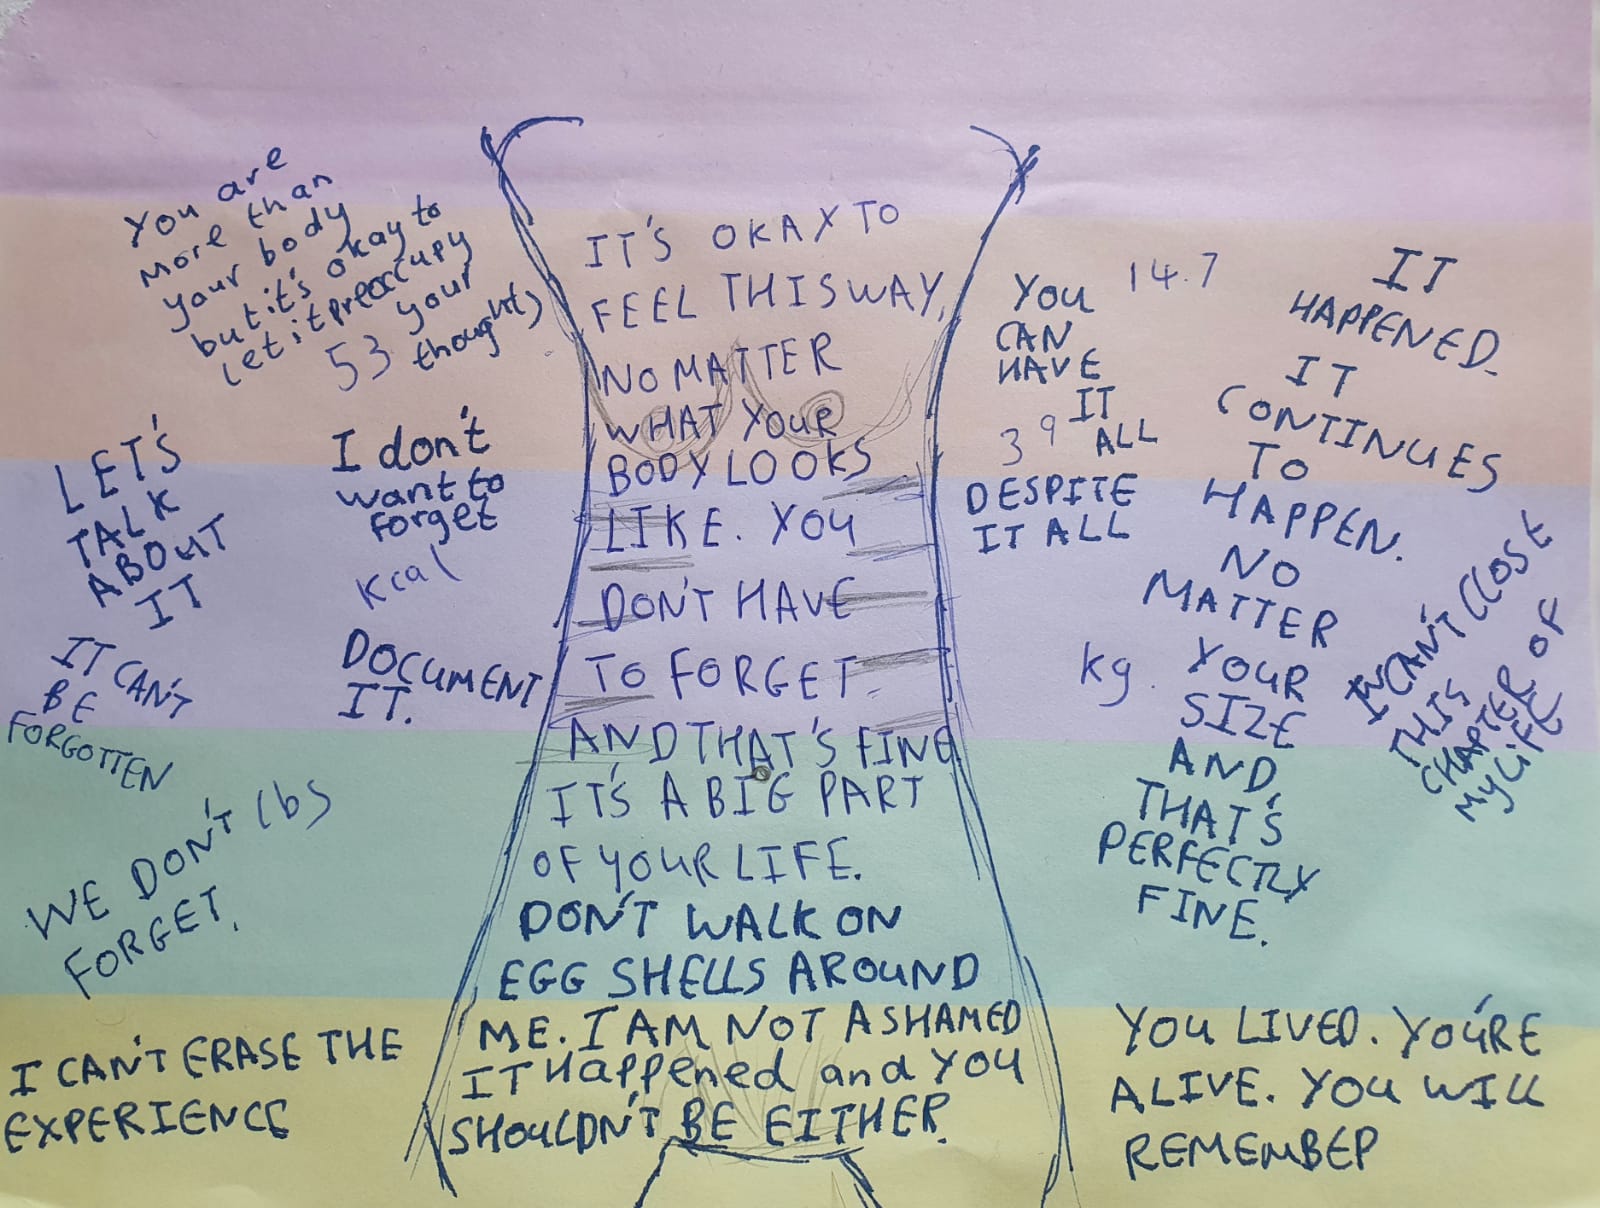 You are
more than
your body
but it's okay to
let it preoccupy
53 your
thoughts
LET'S
TALK
ABOUT
IT
I don't
want to
forget
kcal
DOCUMENT
IT.
IT CAN'T
BE
FORGOTTEN
WE DON'T lbs
FORGET.
I CAN'T ERASE THE
EXPERIENCE
IT'S OKAY TO
FEEL THIS WAY,
NO MATTER
WHAT YOUR
BODY LOOKS
LIKE. YOU
DON'T HAVE
TO FORGET.
AND THAT'S FINE
IT'S A BIG PART
OF YOUR LIFE.
DON'T WALK ON
EGG SHELLS AROUND
ME. I AM NOT ASHAMED
IT Happened and YOU
SHOULDN'T BE EITHER.
YOU
CAN
HAVE
IT
39 ALL
DESPITE
IT ALL
14.7
IT
HAPPENED.
IT
CONTINUES
TO
HAPPEN.
NO
MATTER
kg. YOUR
SIZE
AND,
THAT'S
PERFECTLY
FINE.
CAN'T CLOSE
THIS
CHAPTER OF
MY LIFE
YOU LIVED. YOU'RE
ALIVE. YOU WILL
REMEMBER